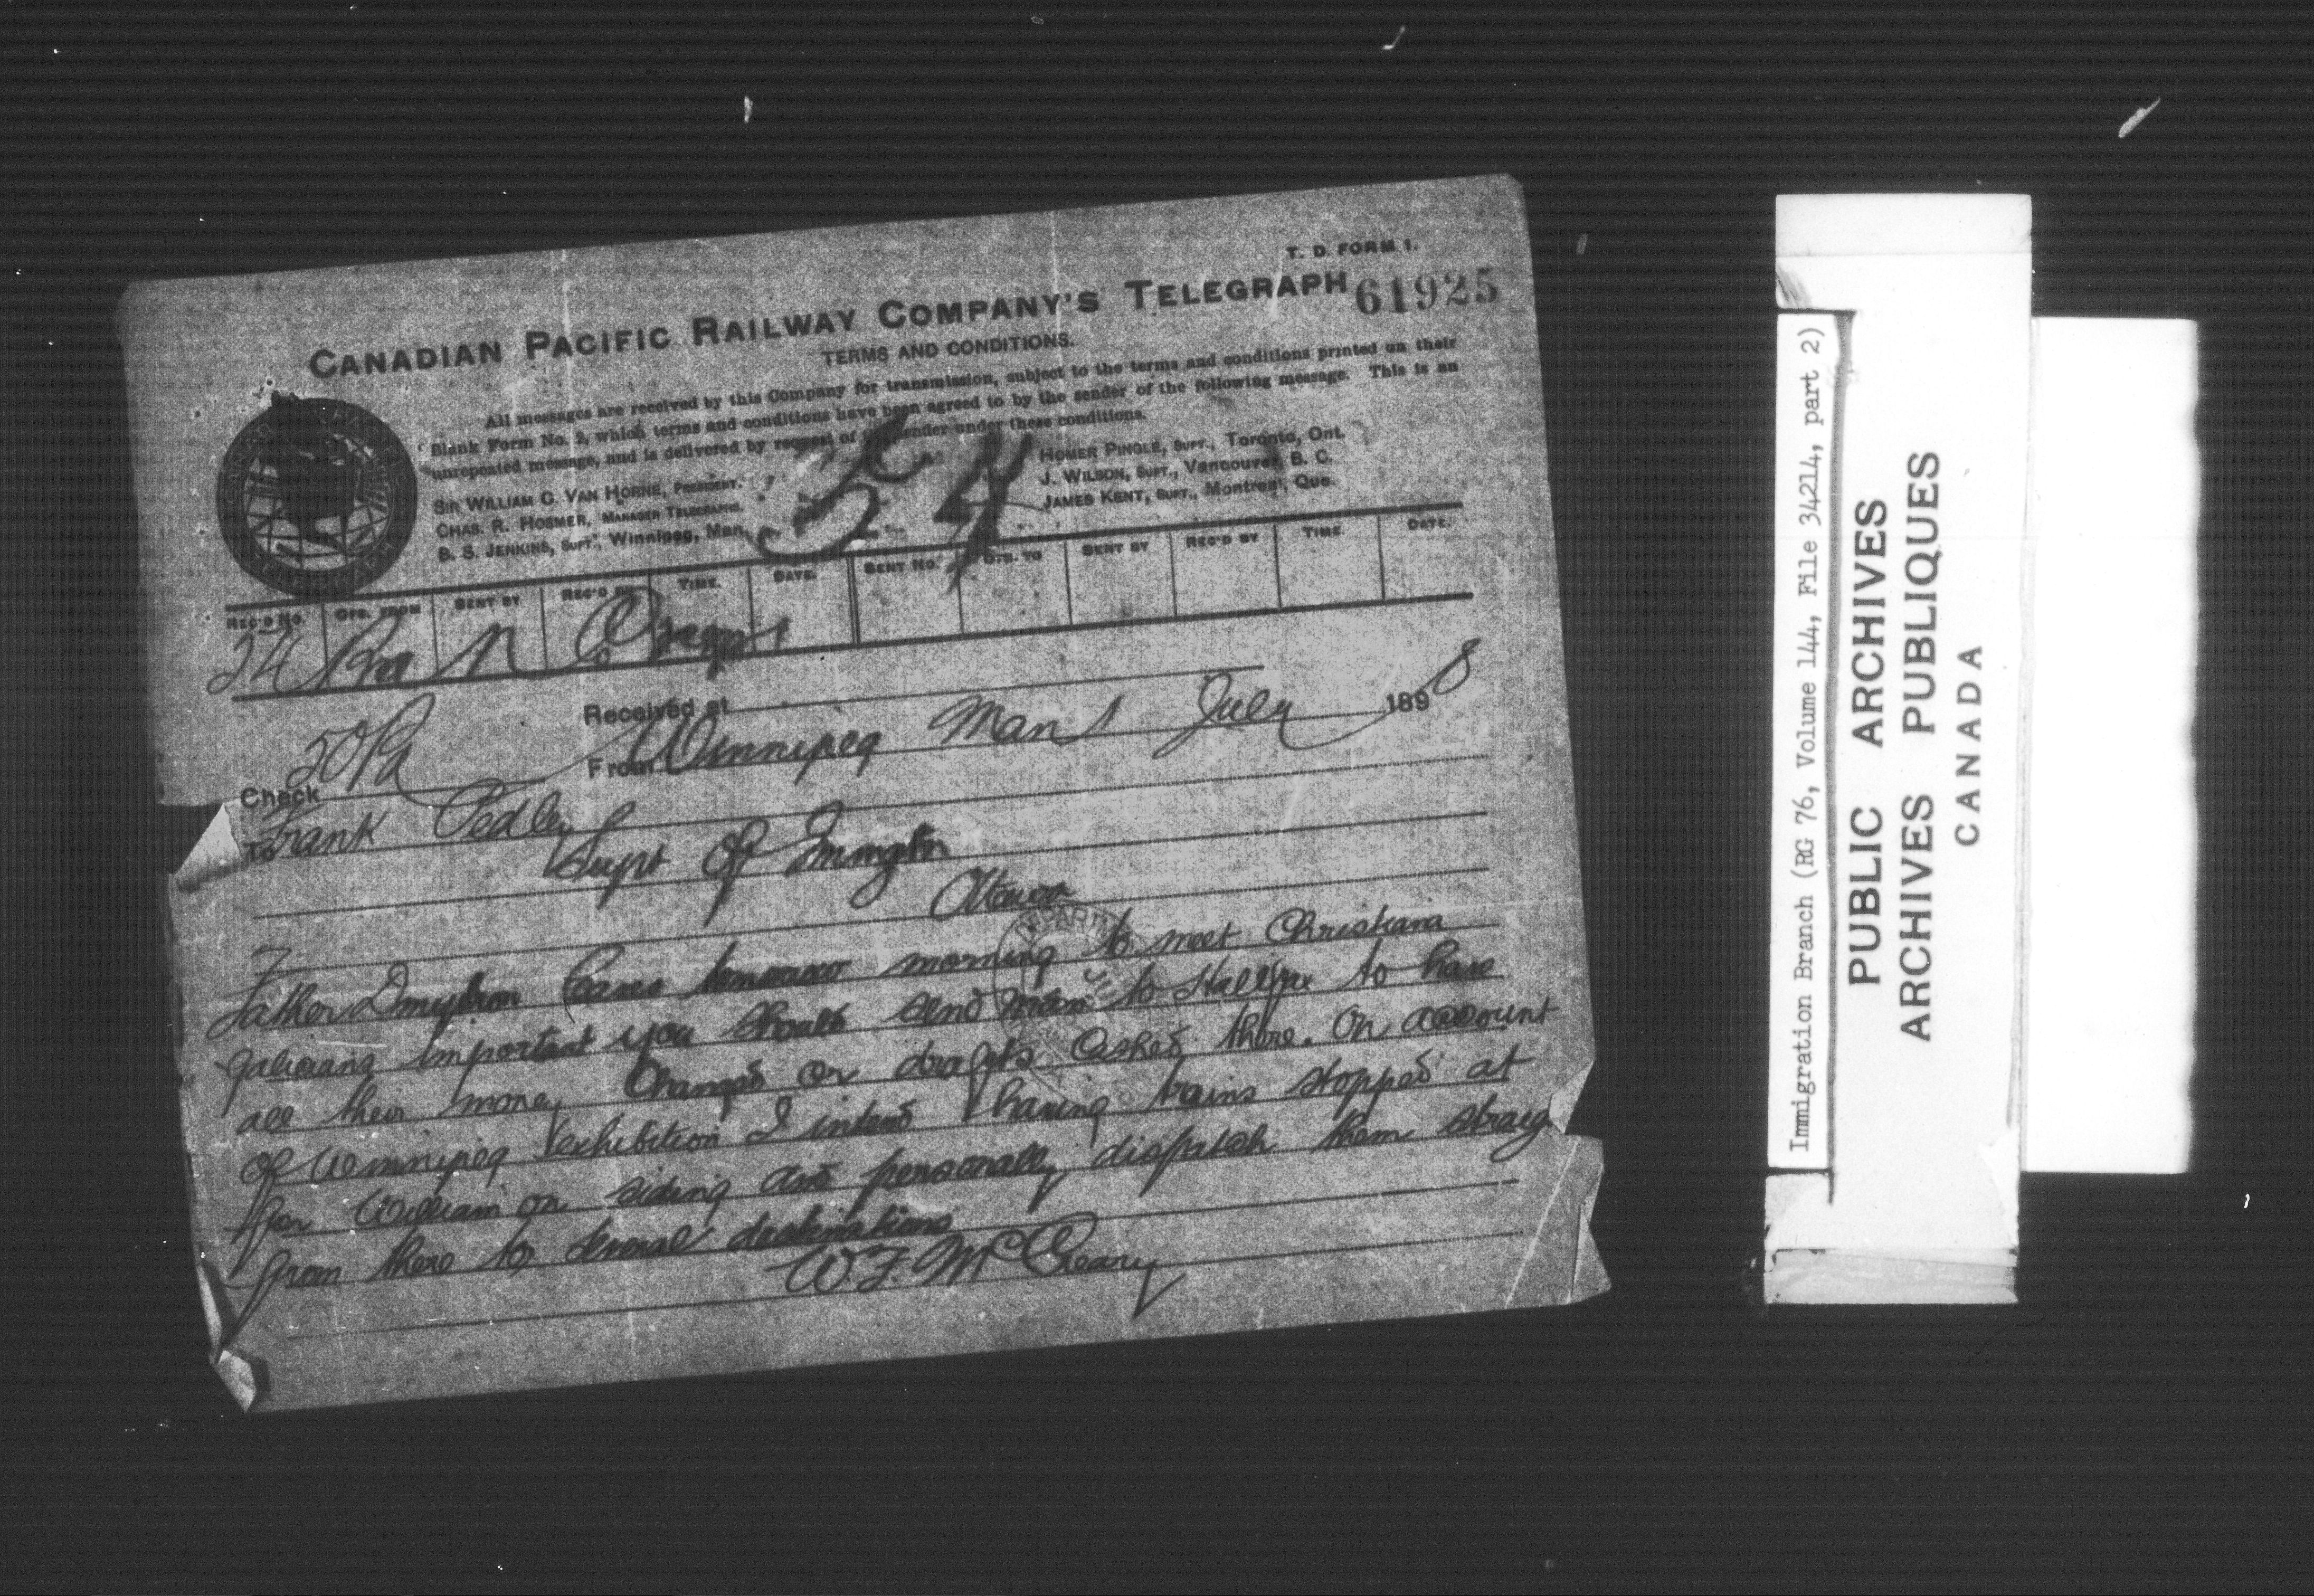 T. D. FORM 1.
CANADIAN PACIFIC RAILWAY COMPANY'S TELEGRAPH 61925
TERMS AND CONDITIONS.
All messages are received by this Company for transmission, subject to the terms and conditions printed on their
Blank Form No. 2, which terms and conditions have been agreed to by the sender of the following message. This is an
unrepeated message, and is delivered by request of the sender under these conditions.
SIR WILLIAM C. VAN HORNE, PRESIDENT.
CHAS. R. HOSMER, MANAGER TELEGRAPHS.
B. S. JENKINS, SUPT., Winnipeg, Man.
54
HOMER PINGLE, SUPT., Toronto, Ont.
J. WILSON, SUPT., Vancouver, B. C.
JAMES KENT, SUPT., Montreal, Que.
CANADIAN PACIFIC TELEGRAPH
REC'D NO. OPG. FROM SENT BY REC'D BY TIME. DATE. SENT NO. OPG. TO SENT BY REC'D BY TIME. DATE.
24 N
Received at
From Winnipeg Man 1 July 1898
Check
To Frank Pedley
Supt of Immgtn
Ottawa
Father Dmytron leaves tomorrow morning to meet Christiana
galicians important you should send man to Halifax to have
all their money changed or drafts cashed there. On account
of Winnipeg exhibition I intend having trains stopped at
for William on siding and personally dispatch them straig
from there to several destinations
W.F. McCreary
Immigration Branch (RG 76, Volume 144, File 34214, part 2)
PUBLIC ARCHIVES
ARCHIVES PUBLIQUES
CANADA